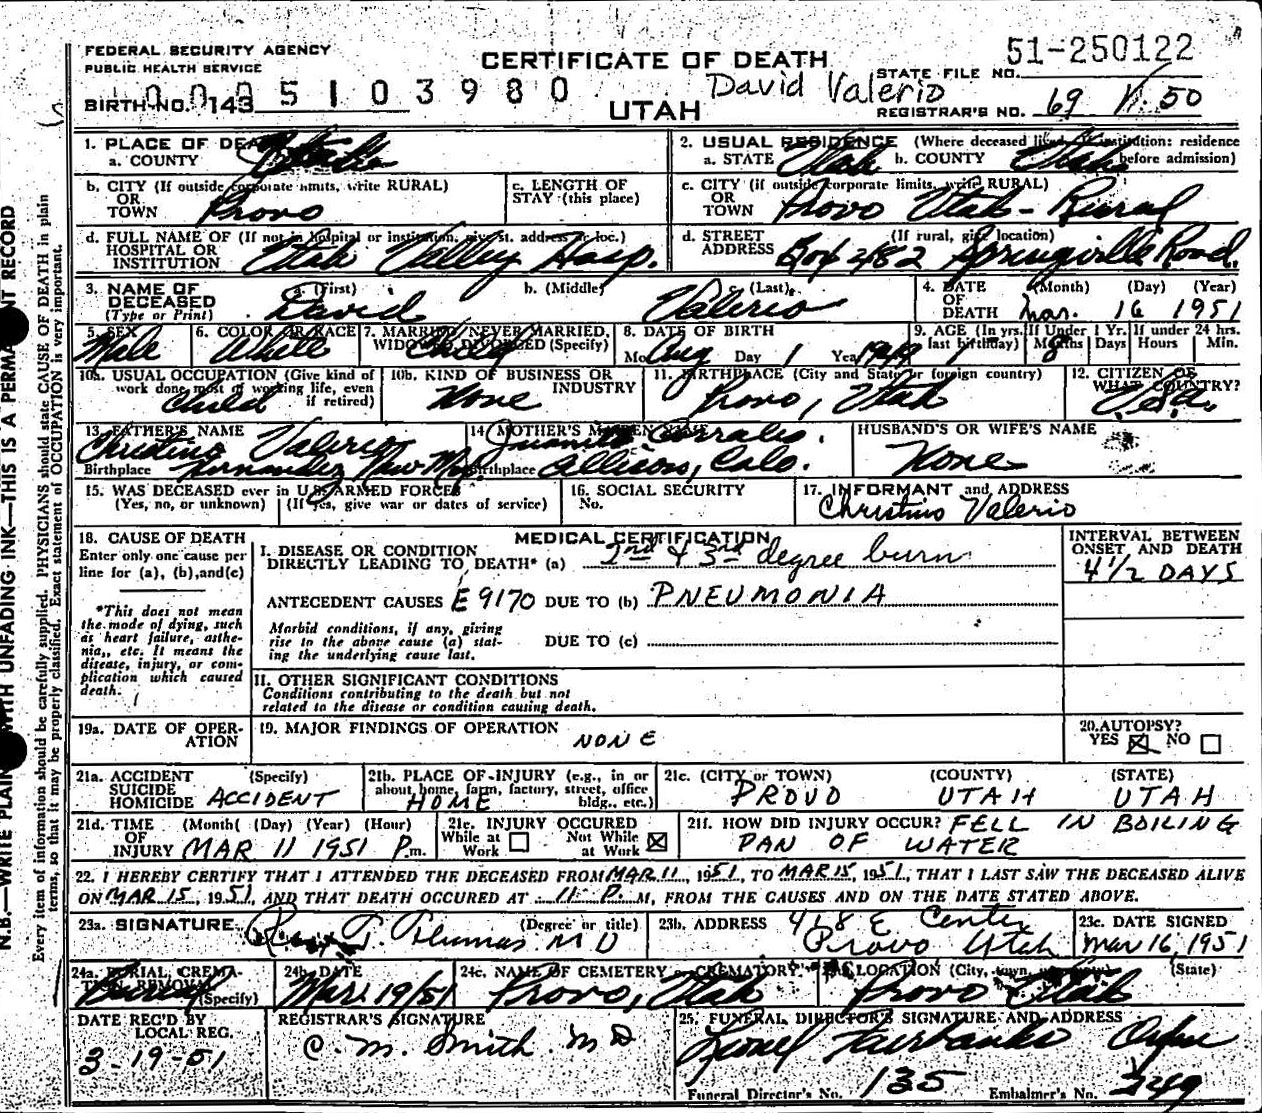 51-250122
FEDERAL SECURITY AGENCY
PUBLIC HEALTH SERVICE
CERTIFICATE OF DEATH
David Valerio
STATE FILE NO.
BIRTH NO. 143
005103980
UTAH
REGISTRAR'S NO. 69 50
1. PLACE OF DEATH
a. COUNTY Utah
2. USUAL RESIDENCE (Where deceased lived. If institution: residence before admission)
a. STATE Utah b. COUNTY Utah
b. CITY (If outside corporate limits, write RURAL)
OR
TOWN Provo
c. LENGTH OF
STAY (this place)
c. CITY (if outside corporate limits, write RURAL)
OR
TOWN Provo Utah - Rural
d. FULL NAME OF (If not in hospital or institution, give st. address or loc.)
HOSPITAL OR
INSTITUTION Utah Valley Hosp.
d. STREET (If rural, give location)
ADDRESS Box 282 Springville Road.
3. NAME OF
DECEASED
(Type or Print)
a. (First) David
b. (Middle)
c. (Last) Valerio
4. DATE (Month) (Day) (Year)
OF
DEATH Mar. 16 1951
5. SEX
Male
6. COLOR OR RACE
White
7. MARRIED, NEVER MARRIED,
WIDOWED, DIVORCED (Specify)
Child
8. DATE OF BIRTH
Mo. Aug Day 1 Year 1949
9. AGE (In yrs. last birthday) 1
If Under 1 Yr. Months Days
8
If under 24 hrs. Hours Min.
10a. USUAL OCCUPATION (Give kind of
work done most of working life, even
if retired)
Child
10b. KIND OF BUSINESS OR
INDUSTRY
None
11. BIRTHPLACE (City and State or foreign country)
Provo, Utah
12. CITIZEN OF
WHAT COUNTRY?
U.S.A.
13. FATHER'S NAME
Christino Valerio
Birthplace Hernandez New Mex.
14. MOTHER'S MAIDEN NAME
Juanita Corrales.
Birthplace Allison, Colo.
HUSBAND'S OR WIFE'S NAME
None
15. WAS DECEASED ever in U.S. ARMED FORCES
(Yes, no, or unknown) (If yes, give war or dates of service)
16. SOCIAL SECURITY
No.
17. INFORMANT and ADDRESS
Christino Valerio
18. CAUSE OF DEATH
Enter only one cause per
line for (a), (b), and (c)
*This does not mean
the mode of dying, such
as heart failure, asthe-
nia, etc. It means the
disease, injury, or com-
plication which caused
death.
MEDICAL CERTIFICATION
I. DISEASE OR CONDITION
DIRECTLY LEADING TO DEATH* (a) 2nd & 3rd degree burn
ANTECEDENT CAUSES E9170 DUE TO (b) PNEUMONIA
Morbid conditions, if any, giving
rise to the above cause (a) stat-
ing the underlying cause last.
DUE TO (c)
II. OTHER SIGNIFICANT CONDITIONS
Conditions contributing to the death but not
related to the disease or condition causing death.
INTERVAL BETWEEN
ONSET AND DEATH
4 1/2 DAYS
19a. DATE OF OPER-
ATION
19. MAJOR FINDINGS OF OPERATION
NONE
20. AUTOPSY?
YES ☒ NO ☐
21a. ACCIDENT (Specify)
SUICIDE
HOMICIDE ACCIDENT
21b. PLACE OF INJURY (e.g., in or
about home, farm, factory, street, office
bldg., etc.)
HOME
21c. (CITY or TOWN) (COUNTY) (STATE)
PROVO UTAH UTAH
21d. TIME (Month) (Day) (Year) (Hour)
OF
INJURY MAR 11 1951 P.m.
21e. INJURY OCCURED
While at Work ☐ Not While at Work ☒
21f. HOW DID INJURY OCCUR? FELL IN BOILING
PAN OF WATER
22. I HEREBY CERTIFY THAT I ATTENDED THE DECEASED FROM MAR 11, 1951, TO MAR 15, 1951, THAT I LAST SAW THE DECEASED ALIVE
ON MAR 15, 1951, AND THAT DEATH OCCURED AT 11 P. M, FROM THE CAUSES AND ON THE DATE STATED ABOVE.
23a. SIGNATURE (Degree or title)
T. Thomas MD
23b. ADDRESS 418 E Center
Provo Utah
23c. DATE SIGNED
Mar 16, 1951
24a. BURIAL, CREMA-
TION, REMOVAL
(Specify)
Burial
24b. DATE
Mar. 19/51
24c. NAME OF CEMETERY or CREMATORY
Provo, Utah
LOCATION (City, town, (State)
Provo Utah
DATE REC'D BY
LOCAL REG.
3-19-51
REGISTRAR'S SIGNATURE
C. M. Smith. MD
25. FUNERAL DIRECTOR'S SIGNATURE AND ADDRESS
Lionel Fairbanks Orem
Funeral Director's No. 135 Embalmer's No. 249
Every item of information should be carefully supplied. PHYSICIANS should state CAUSE OF DEATH in plain
terms, so that it may be properly classified. Exact statement of OCCUPATION is very important.
N.B.—WRITE PLAIN WITH UNFADING INK—THIS IS A PERMA NT RECORD